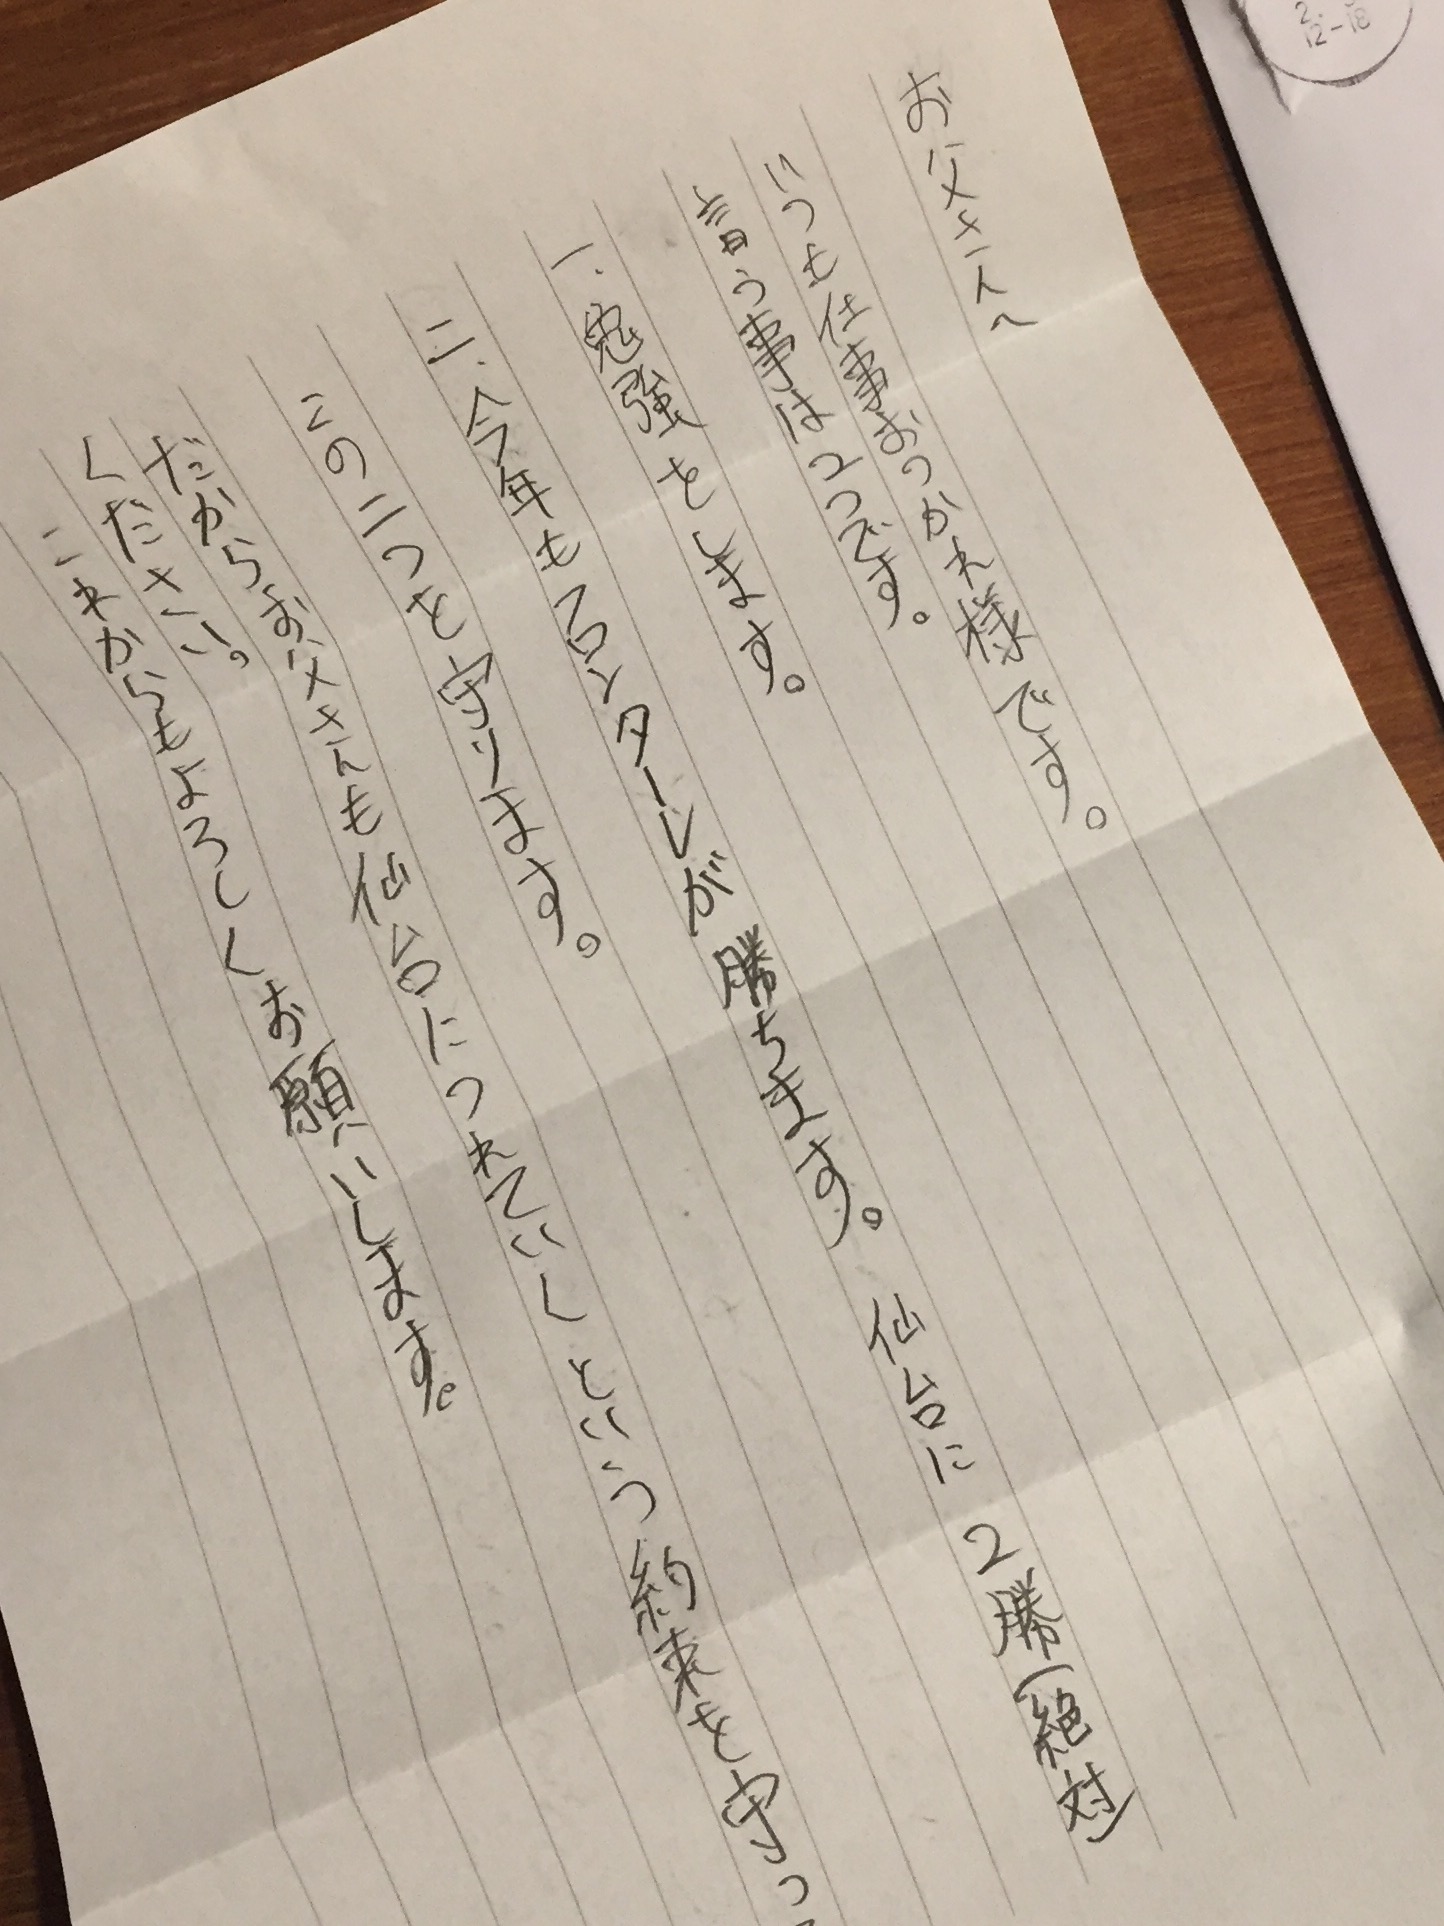 お父さんへ
いつも仕事おつかれ様です。
言う事は2つです。
一.勉強をします。
二.今年もフロンターレが勝ちます。仙台に2勝(絶対)
この二つを守ります。
だからお父さんも仙台につれていくという約束を守って
ください。
これからもよろしくお願いします。
12-18